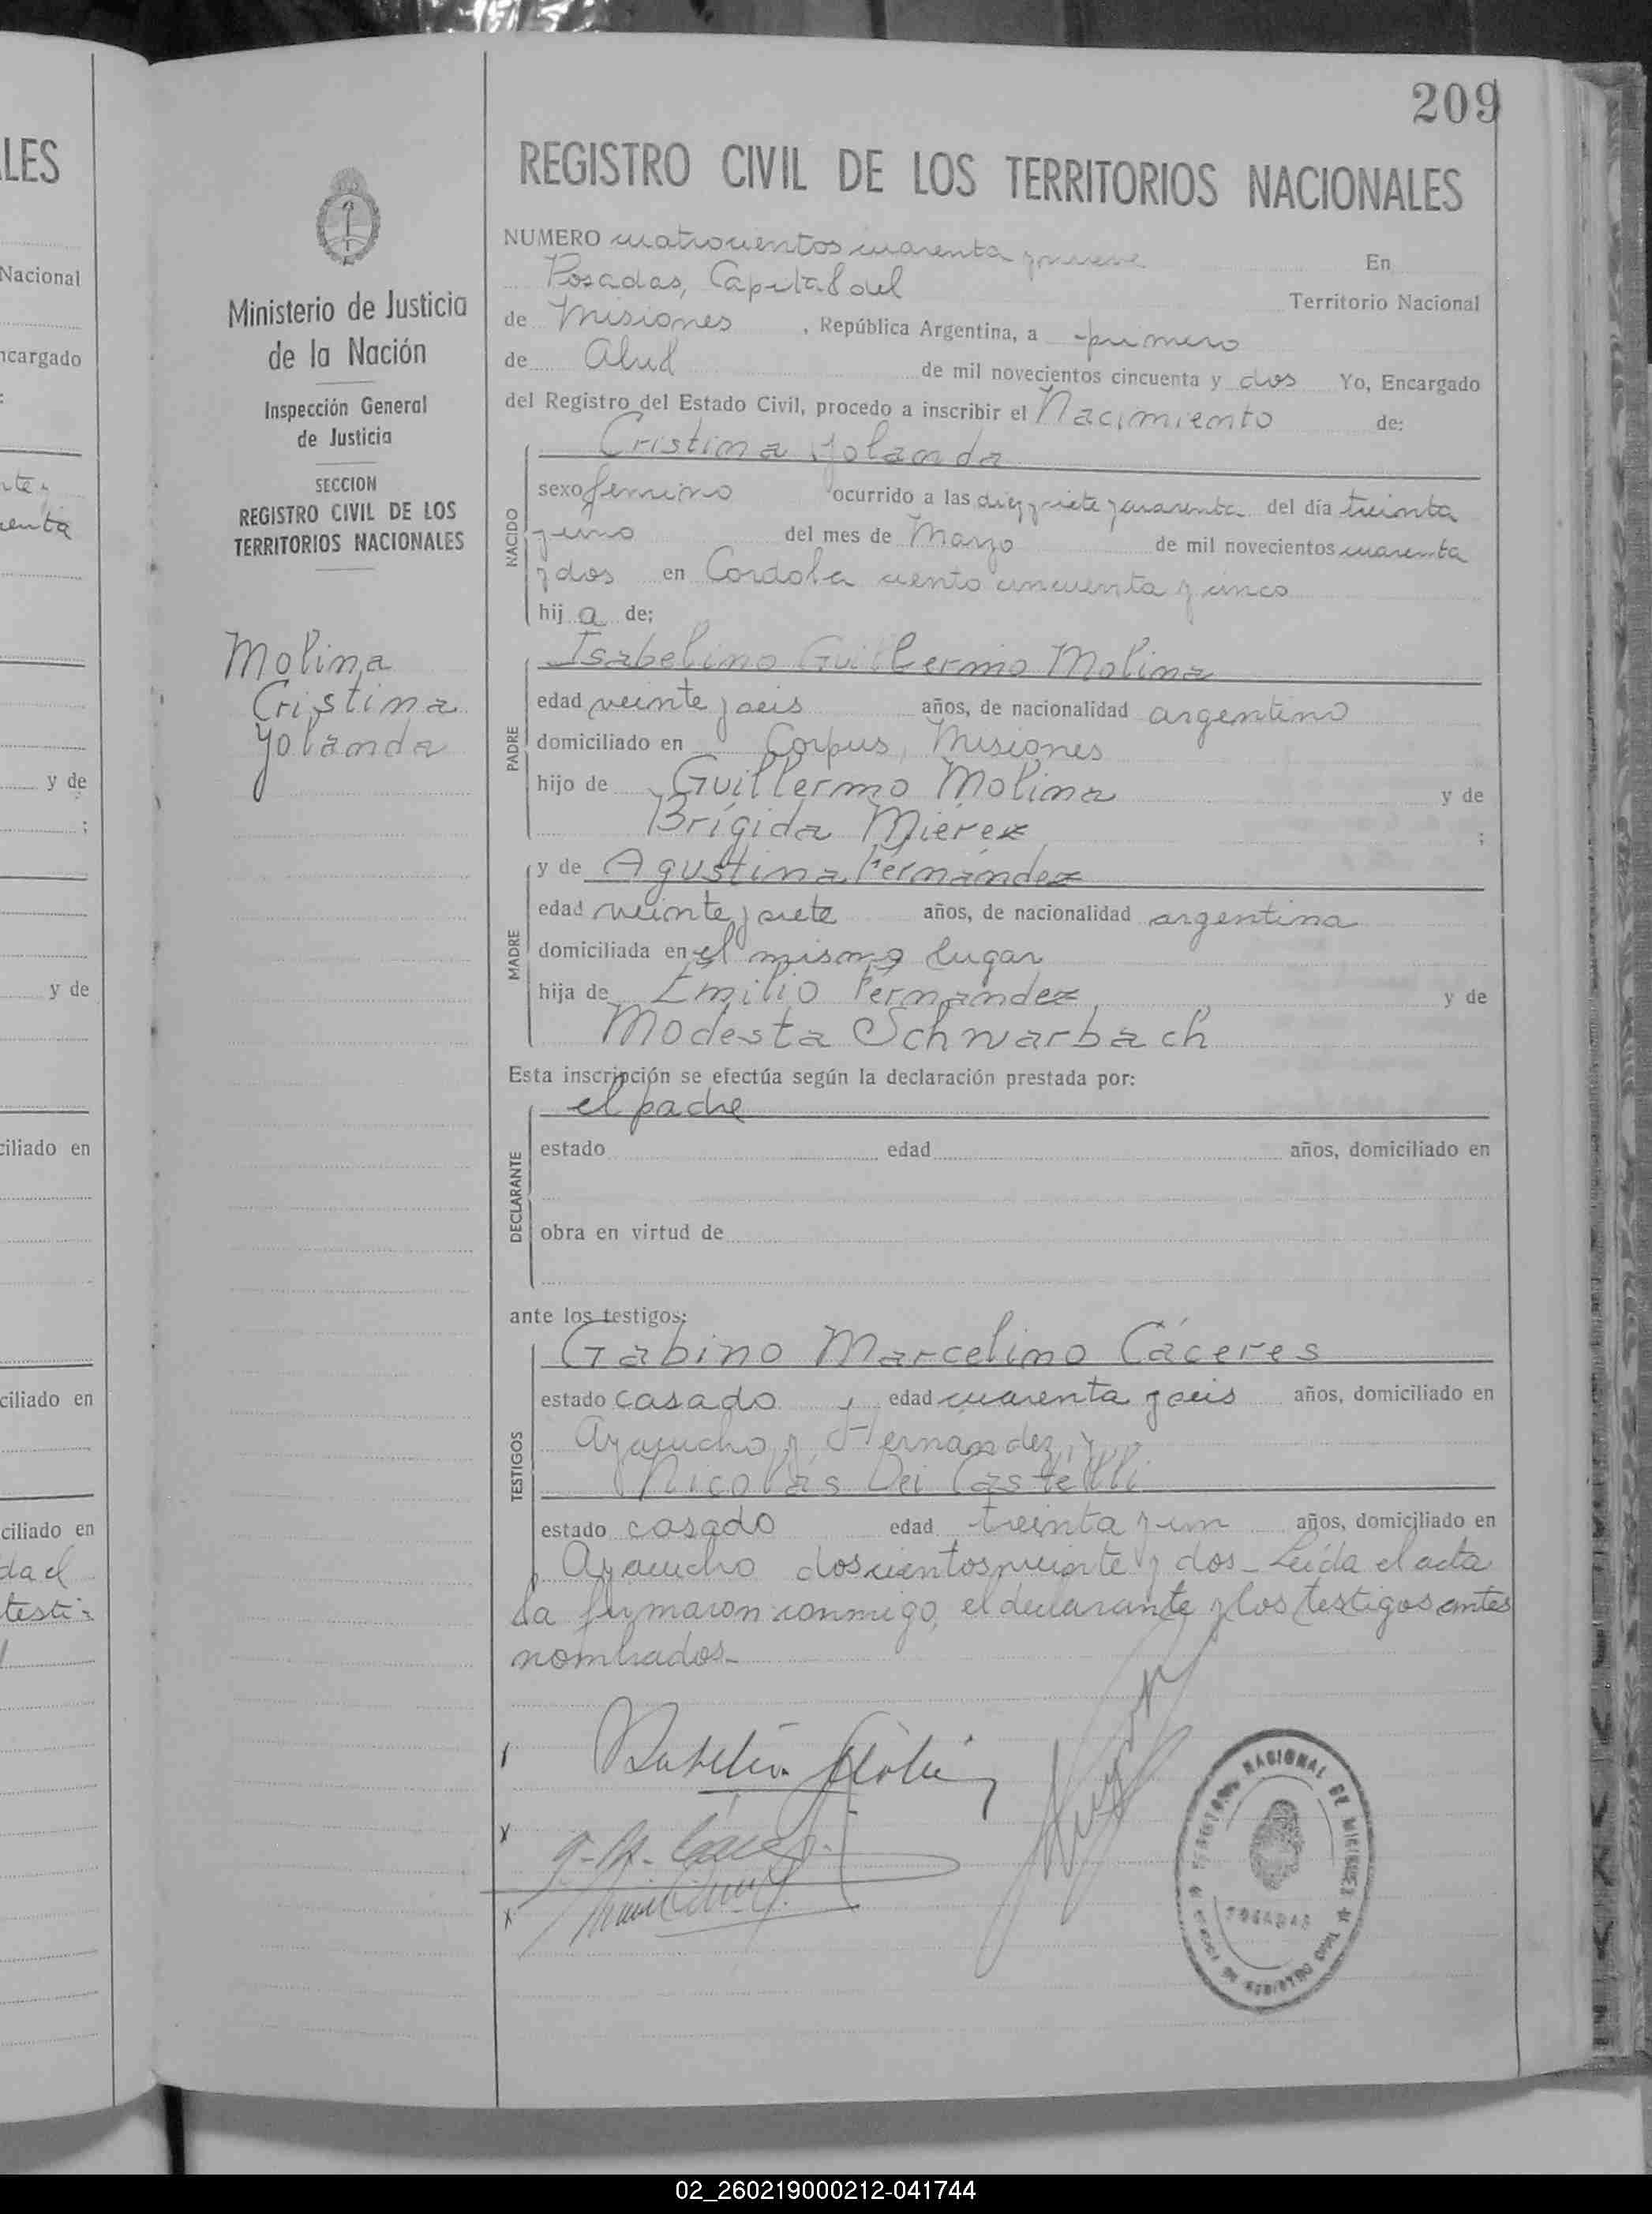 209
LES
REGISTRO CIVIL DE LOS TERRITORIOS NACIONALES
NUMERO cuatrocientos cuarenta y nueve En
Nacional
Posadas, Capital del Territorio Nacional
Ministerio de Justicia
de la Nación
de Misiones , República Argentina, a primero
ncargado
de Abril de mil novecientos cincuenta y dos Yo, Encargado
Inspección General
de Justicia
del Registro del Estado Civil, procedo a inscribir el Nacimiento de:
Cristina Yolanda
SECCION
REGISTRO CIVIL DE LOS
TERRITORIOS NACIONALES
NACIDO
sexo femenino ocurrido a las diez y siete y cuarenta del día treinta
y uno del mes de Marzo de mil novecientos cuarenta
y dos en Cordoba ciento cincuenta y cinco
hij a de;
Molina
Cristina
Yolanda
PADRE
Isabelino Guillermo Molina
edad veinte y seis años, de nacionalidad argentino
domiciliado en Corpus, Misiones
hijo de Guillermo Molina y de
Brígida Mierez ;
y de
;
MADRE
y de Agustina Fernández
edad veinte y siete años, de nacionalidad argentina
domiciliada en el mismo lugar
hija de Emilio Fernández y de
Modesta Schwarbach
y de
Esta inscripción se efectúa según la declaración prestada por:
el padre
DECLARANTE
estado edad años, domiciliado en
obra en virtud de
ciliado en
ante los testigos:
TESTIGOS
Gabino Marcelino Cáceres
estado casado edad cuarenta y seis años, domiciliado en
Ayacucho y Hernández, y
Nicolás Dei Castelli
estado casado edad treinta y un años, domiciliado en
Ayacucho doscientos veinte y dos - Leída el acta
la firmaron conmigo, el declarante y los testigos antes
nombrados-
ciliado en
ciliado en
da el
testi-
POSADAS
02_260219000212-041744